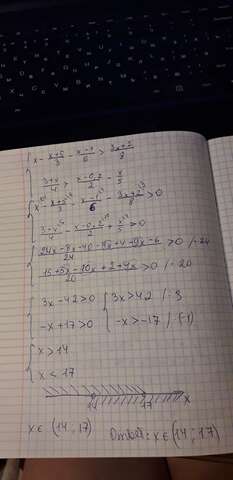 x - (x+5)/3 - (x-1)/6 > (3x+2)/8
(3+x)/4 > (x-0,2)/2 - x/5
(24x-8x-40-4x+4-9x-6)/24 > 0 /·24
(15+5x-10x+2+4x)/20 > 0 /·20
3x-42>0 3x>42 /:3
-x+17>0 -x>-17 /·(-1)
x>14
x<17
14 17 x
x∈ (14; 17) Ответ: x∈(14; 17)